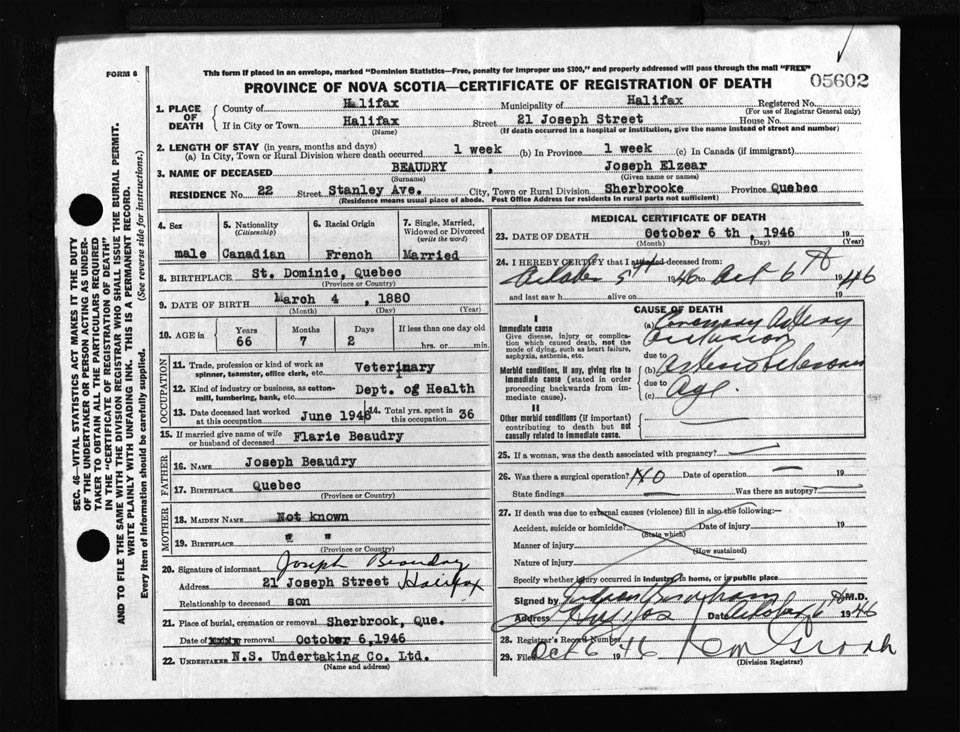 FORM 6
This form if placed in an envelope, marked "Dominion Statistics—Free, penalty for improper use $300," and properly addressed will pass through the mail "FREE"
05602
PROVINCE OF NOVA SCOTIA—CERTIFICATE OF REGISTRATION OF DEATH
SEC. 46—VITAL STATISTICS ACT MAKES IT THE DUTY
OF THE UNDERTAKER OR PERSON ACTING AS UNDER-
TAKER TO OBTAIN ALL THE PARTICULARS REQUIRED
IN THE "CERTIFICATE OF REGISTRATION OF DEATH"
AND TO FILE THE SAME WITH THE DIVISION REGISTRAR WHO SHALL ISSUE THE BURIAL PERMIT.
WRITE PLAINLY WITH UNFADING INK. THIS IS A PERMANENT RECORD.
Every item of information should be carefully supplied. (See reverse side for instructions.)
1. PLACE OF DEATH
County of Halifax Municipality of Halifax Registered No.
(For use of Registrar General only)
If in City or Town Halifax Street 21 Joseph Street House No.
(Name) (If death occurred in a hospital or institution, give the name instead of street and number)
2. LENGTH OF STAY (in years, months and days)
(a) In City, Town or Rural Division where death occurred 1 week (b) In Province 1 week (c) In Canada (if immigrant)
3. NAME OF DECEASED BEAUDRY , Joseph Elzear
(Surname) (Given name or names)
RESIDENCE No. 22 Street Stanley Ave. City, Town or Rural Division Sherbrooke Province Quebec
(Residence means usual place of abode. Post Office Address for residents in rural parts not sufficient)
4. Sex male
5. Nationality (Citizenship) Canadian
6. Racial Origin French
7. Single, Married, Widowed or Divorced (write the word) Married
8. BIRTHPLACE St. Dominic, Quebec
(Province or Country)
9. DATE OF BIRTH March 4 , 1880
(Month) (Day) (Year)
10. AGE in Years 66 Months 7 Days 2 If less than one day old hrs. or min.
OCCUPATION
11. Trade, profession or kind of work as spinner, teamster, office clerk, etc. Veterimary
12. Kind of industry or business, as cotton-mill, lumbering, bank, etc. Dept. of Health
13. Date deceased last worked at this occupation June 1946
14. Total yrs. spent in this occupation 36
15. If married give name of wife or husband of deceased Flarie Beaudry
FATHER
16. NAME Joseph Beaudry
17. BIRTHPLACE Quebec
(Province or Country)
MOTHER
18. MAIDEN NAME Not known
19. BIRTHPLACE " "
(Province or Country)
20. Signature of informant Joseph Beaudry
Address 21 Joseph Street Halifax
Relationship to deceased son
21. Place of burial, cremation or removal Sherbrook, Que.
Date of removal October 6,1946
22. UNDERTAKER N.S. Undertaking Co. Ltd.
(Name and address)
MEDICAL CERTIFICATE OF DEATH
23. DATE OF DEATH October 6 th , 1946 19
(Month) (Day) (Year)
24. I HEREBY CERTIFY that I attended deceased from:
October 5th 1946 to Oct 6th 1946
and last saw h alive on 19
CAUSE OF DEATH
I
Immediate cause
Give disease, injury or complication which caused death, not the mode of dying, such as heart failure, asphyxia, asthenia, etc.
(a) Coronary Artery
Occlusion
due to
Morbid conditions, if any, giving rise to immediate cause (stated in order proceeding backwards from immediate cause).
(b) Arteriosclerosis
due to
(c) Age.
II
Other morbid conditions (if important) contributing to death but not causally related to immediate cause.
25. If a woman, was the death associated with pregnancy?
26. Was there a surgical operation? NO Date of operation — 19
State findings — Was there an autopsy?
27. If death was due to external causes (violence) fill in also the following:—
Accident, suicide or homicide? Date of injury 19
(State which)
Manner of injury
(How sustained)
Nature of injury
Specify whether injury occurred in industry, in home, or in public place
Signed by M.D.
Address Halifax Date October 6th 1946
28. Registrar's Record Number
29. Filed Oct 6 1946
(Division Registrar)